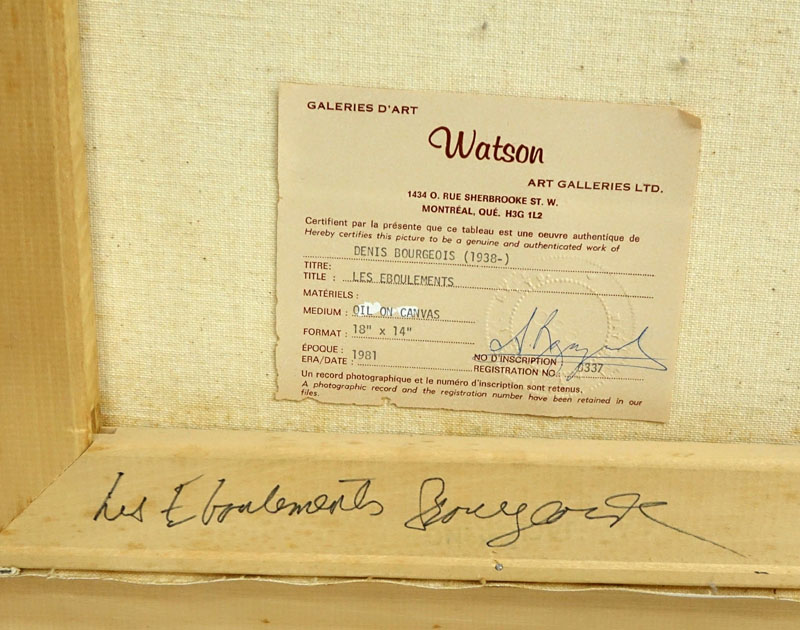 GALERIES D'ART
Watson
ART GALLERIES LTD.
1434 O. RUE SHERBROOKE ST. W.
MONTRÉAL, QUÉ. H3G 1L2
Certifient par la présente que ce tableau est une oeuvre authentique de
Hereby certifies this picture to be a genuine and authenticated work of
DENIS BOURGEOIS (1938-)
TITRE:
TITLE : LES EBOULEMENTS
MATÉRIELS :
MEDIUM : OIL ON CANVAS
FORMAT : 18" x 14"
ÉPOQUE :
ERA/DATE : 1981
NO D'INSCRIPTION
REGISTRATION NO.: 6337
Un record photographique et le numéro d'inscription sont retenus.
A photographic record and the registration number have been retained in our
files.
Les Eboulements Bourgeois